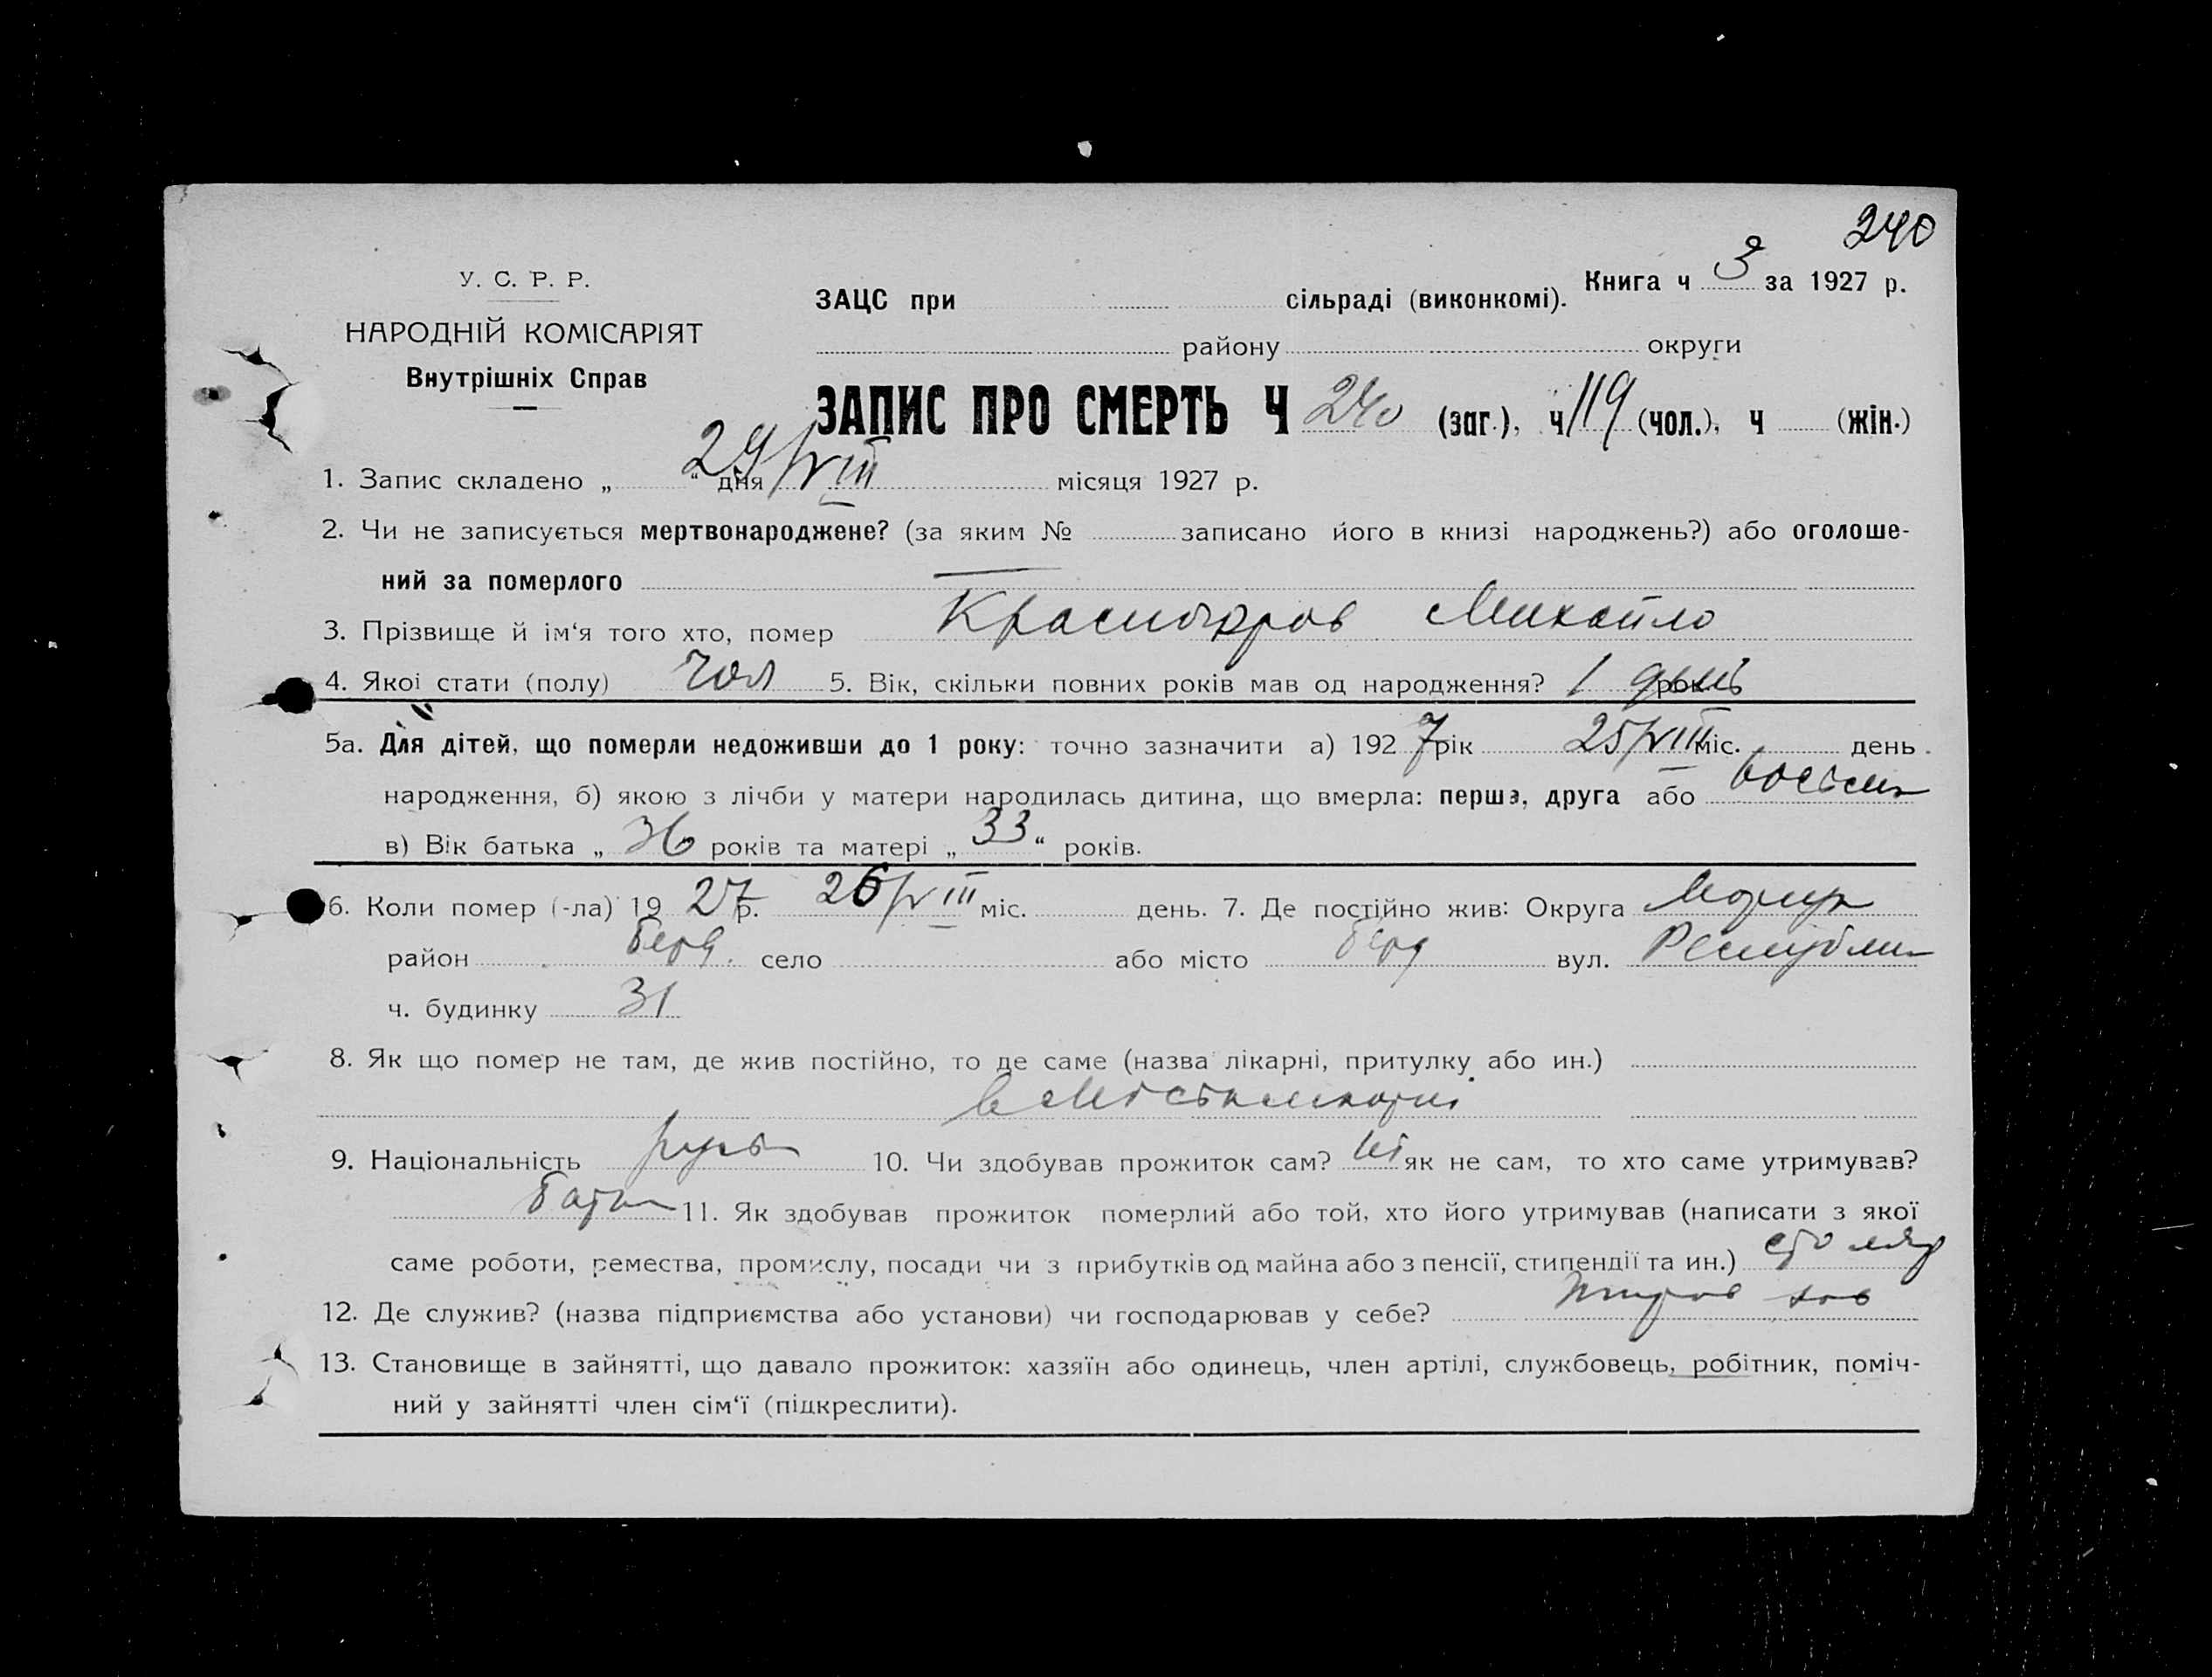 240
У. С. Р. Р.
НАРОДНІЙ КОМІСАРІЯТ
Внутрішніх Справ
Книга ч 3 за 1927 р.
ЗАЦС при сільраді (виконкомі).
району округи
ЗАПИС ПРО СМЕРТЬ Ч 240 (заг.), ч 119 (чол.), ч (жін.)
1. Запис складено „ “ дня 29/VIII місяця 1927 р.
2. Чи не записується мертвонароджене? (за яким № записано його в книзі народжень?) або оголоше-
ний за померлого —
3. Прізвище й ім‘я того хто, помер Михайло
4. Якої стати (полу) чол 5. Вік, скільки повних років мав од народження? 1 день рок
5а. Для дітей, що померли недоживши до 1 року: точно зазначити а) 1927 рік 25/VIII міс. день
народження, б) якою з лічби у матери народилась дитина, що вмерла: перша, друга або
в) Вік батька „ 36 років та матері „ 33 “ років.
6. Коли помер (-ла) 1927 р. 26/VIII міс. день. 7. Де постійно жив: Округа
район Берд. село або місто Берд вул.
ч. будинку 31
8. Як що помер не там, де жив постійно, то де саме (назва лікарні, притулку або ин.)
9. Національність 10. Чи здобував прожиток сам? ні як не сам, то хто саме утримував?
11. Як здобував прожиток померлий або той, хто його утримував (написати з якої
саме роботи, ремества, промислу, посади чи з прибутків од майна або з пенсії, стипендії та ин.) столяр
12. Де служив? (назва підприємства або установи) чи господарював у себе?
13. Становище в зайнятті, що давало прожиток: хазяїн або одинець, член артілі, службовець, робітник, поміч-
ний у зайнятті член сім‘ї (підкреслити).